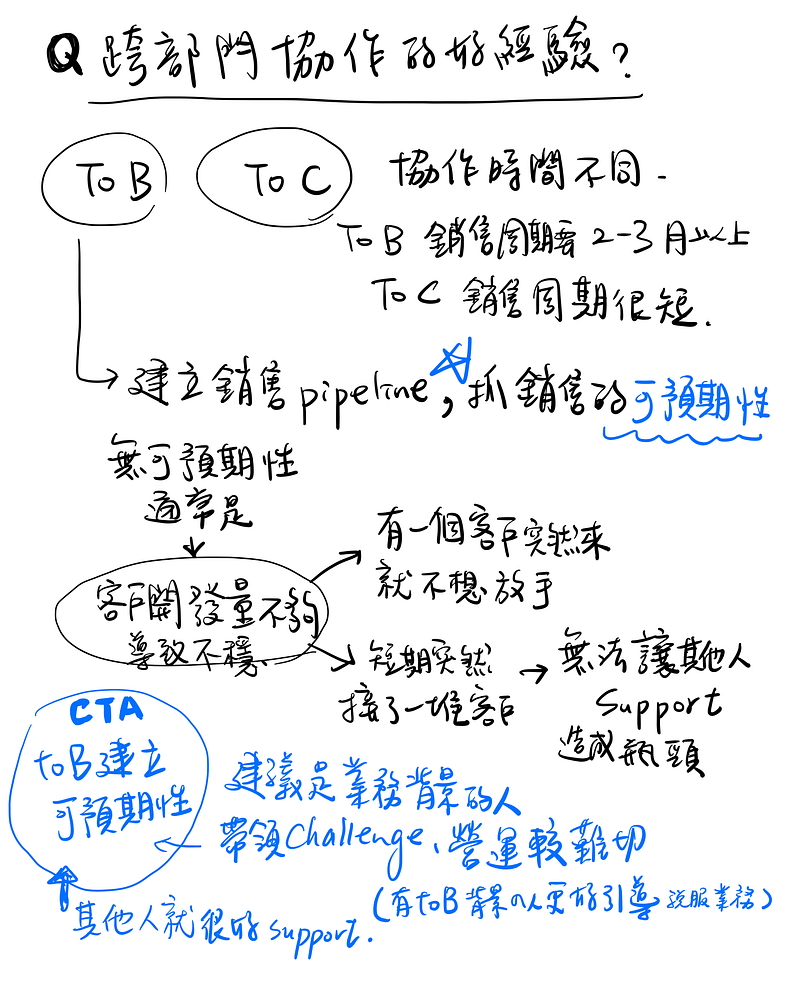 Q 跨部門協作的好經驗？
To B
To C
協作時間不同.
To B 銷售周期要 2-3月以上
To C 銷售周期很短.
建立銷售pipeline, 抓銷售的可預期性
無可預期性
通常是
客戶開發量不夠
導致不穩
有一個客戶突然來
就不想放手
短期突然
接了一堆客戶
無法讓其他人
Support
造成瓶頸
CTA
toB建立
可預期性
建議是業務背景的人
帶領Challenge、營運較難切
(有toB背景の人更好引導說服業務)
其他人就很好support.